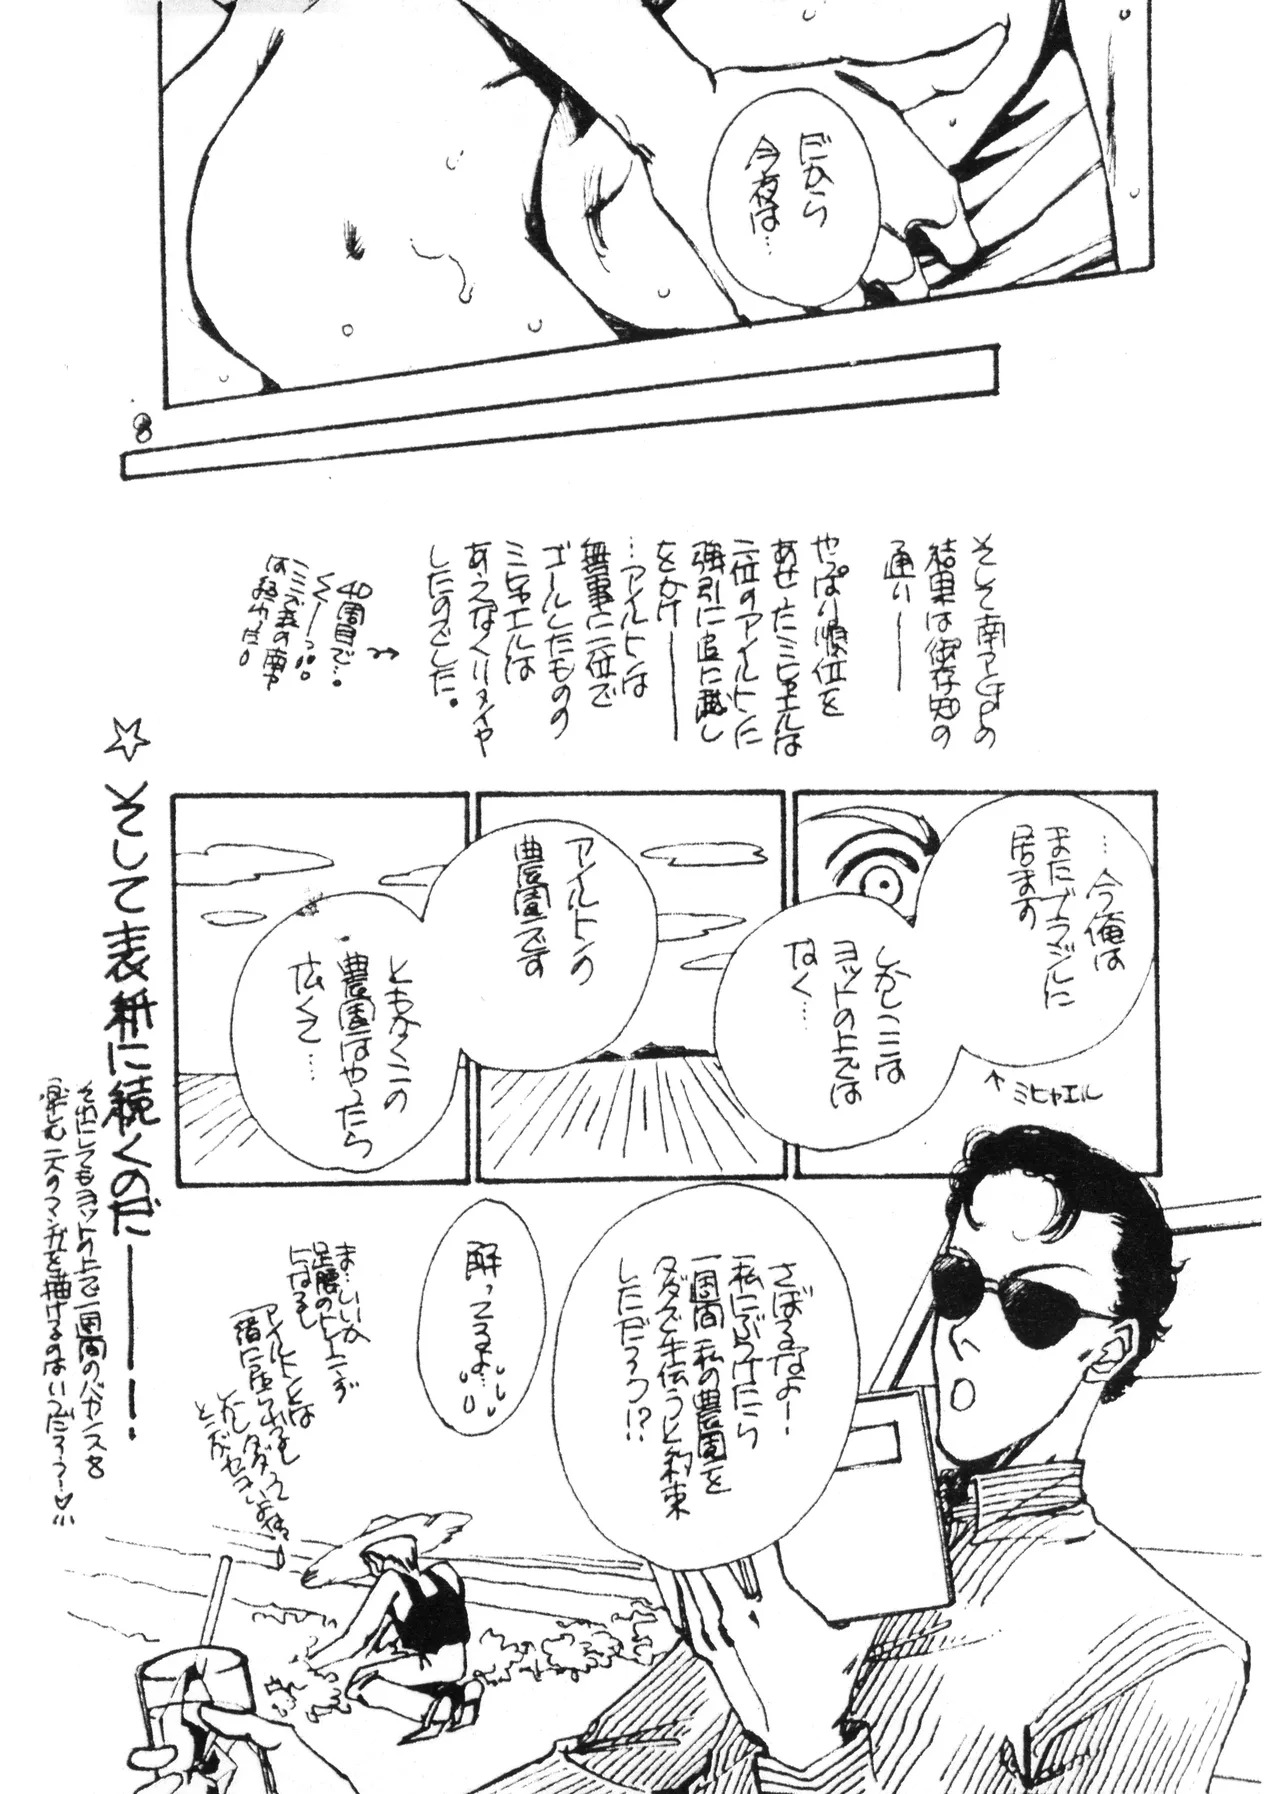 だから
今夜は…
8
そして南アとGPの
結果は御存知の
通り――
やっぱり順位を
あせったミヒャエルは
二位のアイルトンに
強引に追い越し
をかけ――
…アイルトンは
無事に二位で
ゴールしたものの
ミヒャエルは
あえなくリタイヤ
したのでした。
40周目で…。
くく――っ
ミミズ表の南ア
は終わった!
…今俺は
まだブラジルに
居ます
しかしここは
ヨットの上では
なく…
↑ミヒャエル
アイルトンの
農園です
ともかくこの
農園はやったら
広くて…
さぼるなよー
私にぶつけたら
一週間私の農園を
タダで手伝うと約束
しただろう!?
解ってるよ…
ま…いいか
足腰のトレーニング
にはなるし
アイルトンとは
一緒に居られるし
☆そして表紙に続くのだ――。
それにしてもヨットの上で一週間のバカンスを
楽しむ二人のマンガを描けるのはいつだろうー♡